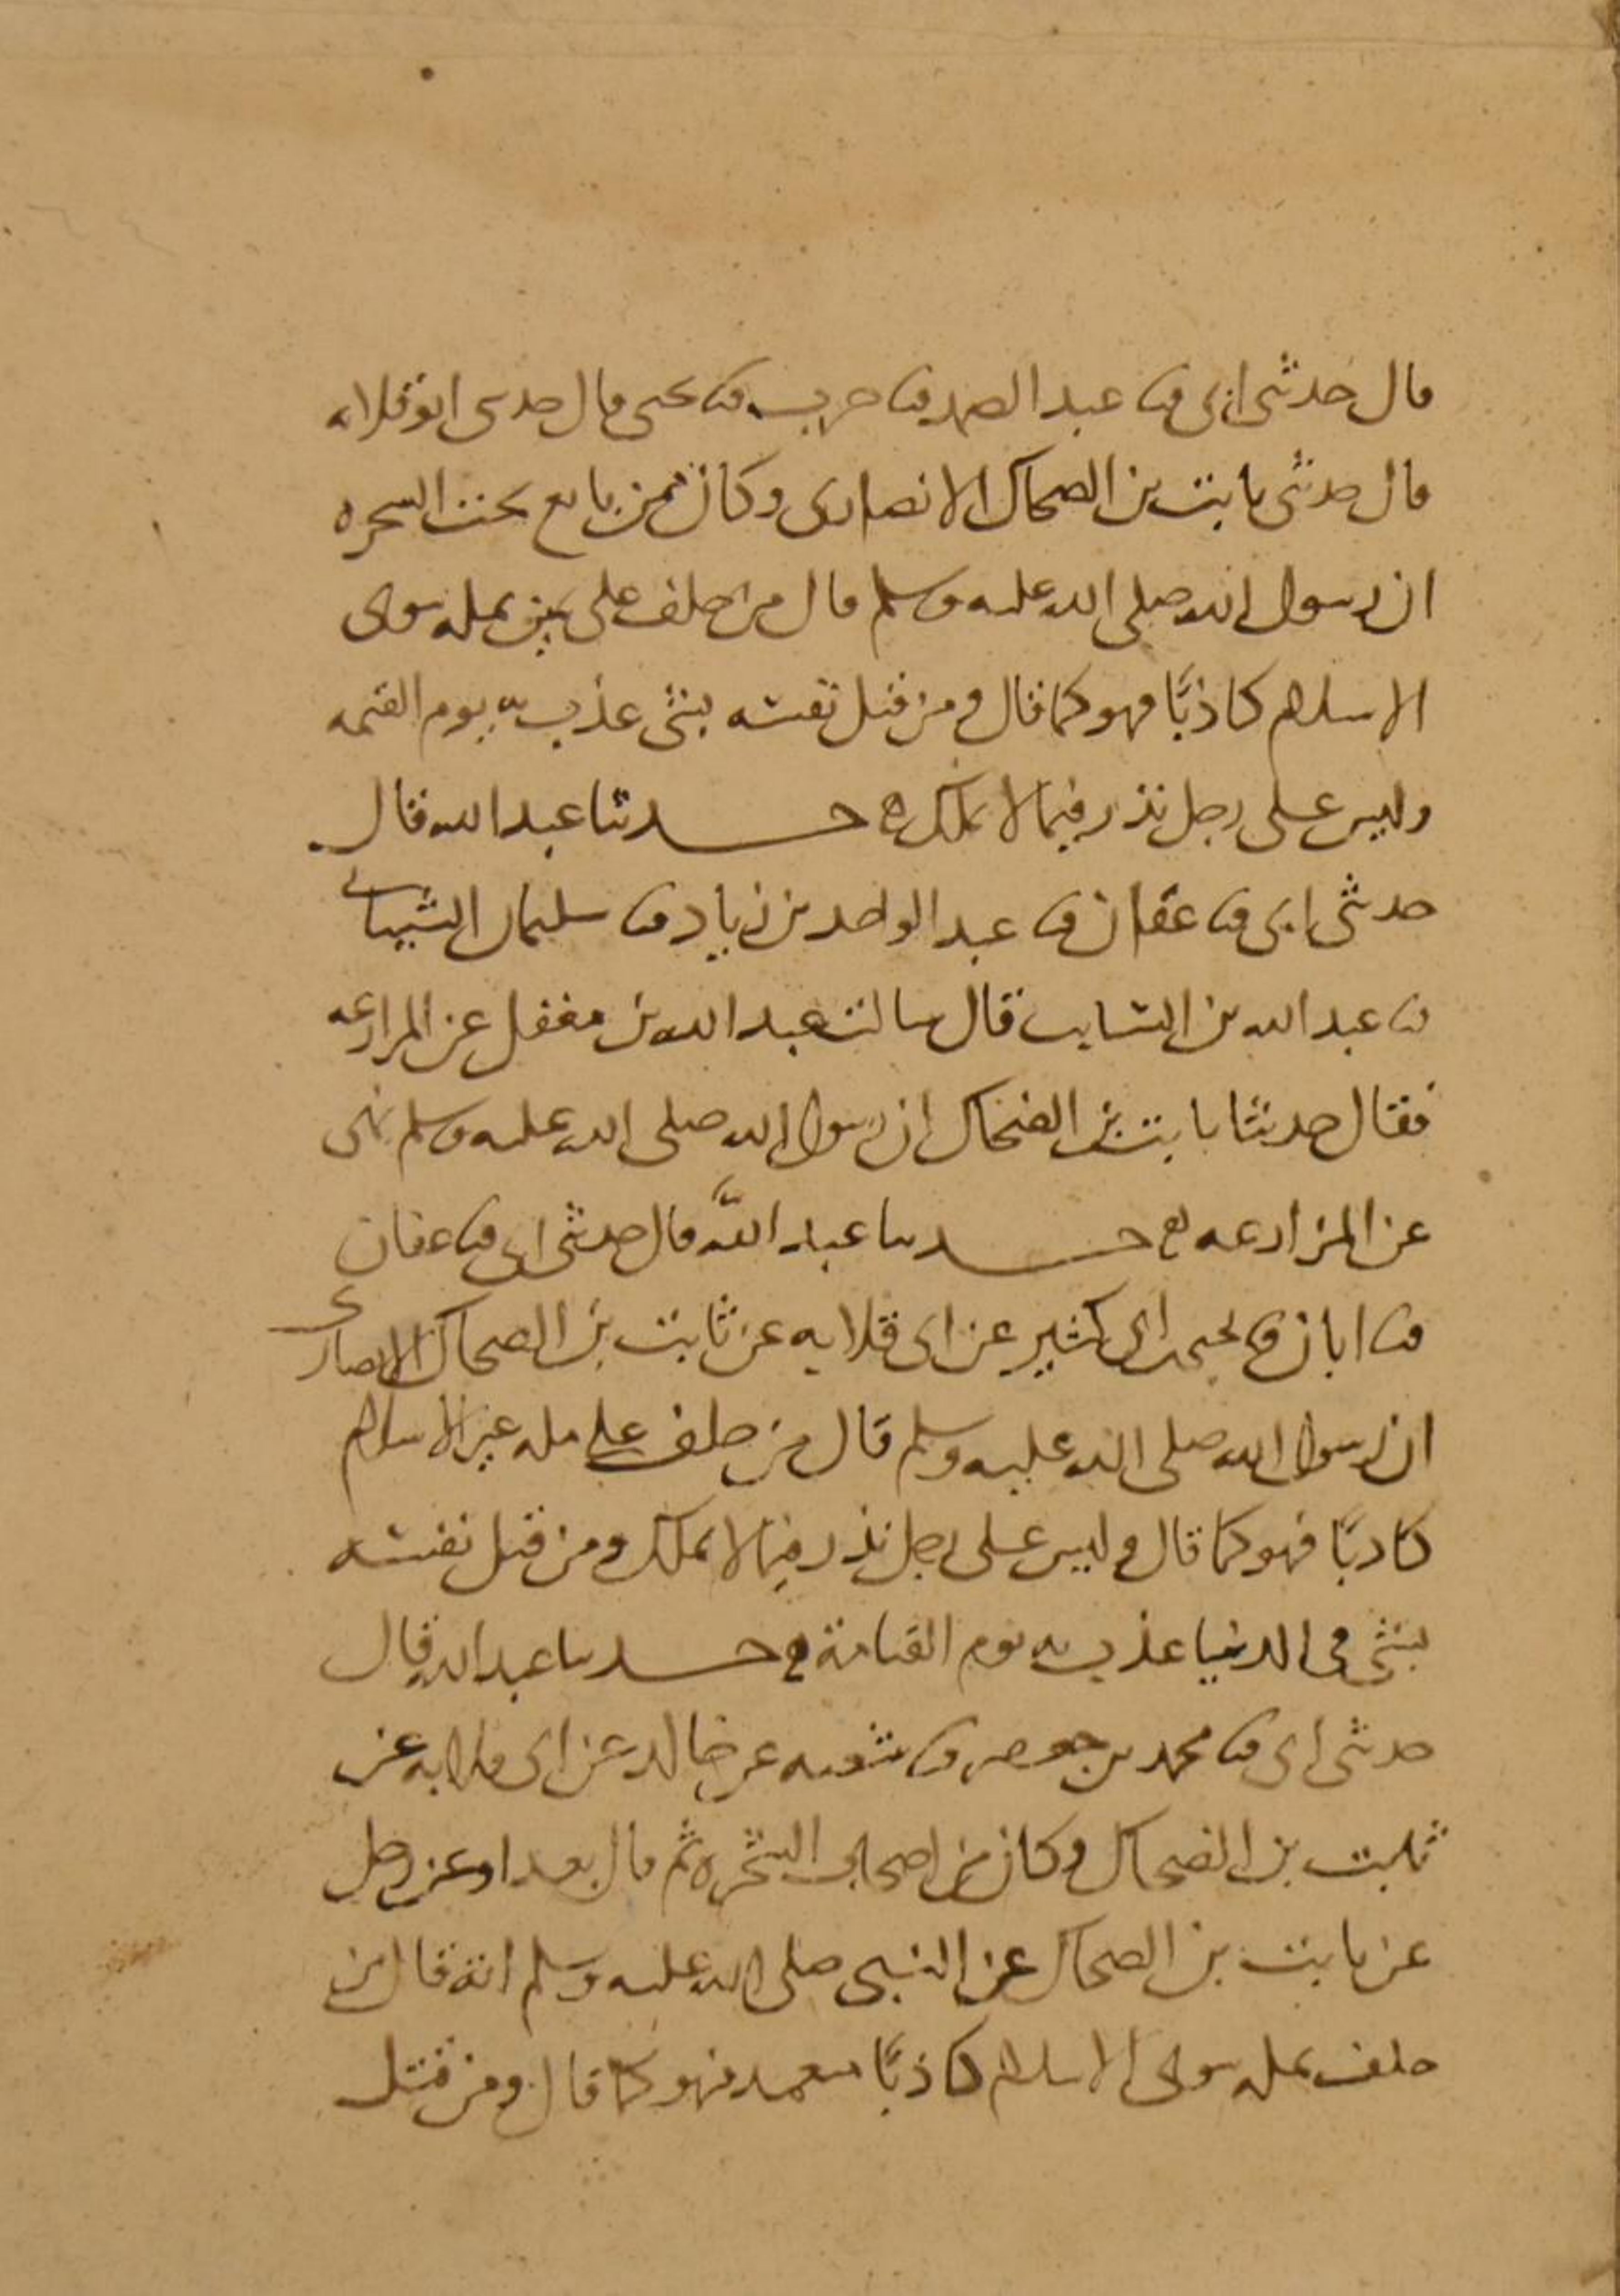 قال حدثني ابي ثنا عبد الصمد ثنا حرب ثنا يحيى قال حدثني ابو قلابه
قال حدثني ثابت بن الضحاك الانصارى وكان ممن بايع تحت الشجره
ان رسول الله صلى الله عليه وسلم قال من حلف على يمين بمله سوى
الاسلام كاذبًا فهو كما قال ومن قتل نفسه بشئ عذب به يوم القيمه
وليس على رجل نذر فيما لا يملك ه حدثنا عبد الله قال
حدثني ابى ثنا عفان ثنا عبد الواحد بن زياد ثنا سليمان الشيبانى
ثنا عبد الله بن السايب قال سالت عبد الله بن مغفل عن المزارعه
فقال حدثنا ثابت بن الضحاك ان رسول الله صلى الله عليه وسلم نهى
عن المزارعه ه حدثنا عبد الله قال حدثني ابى ثنا عفان
ثنا ابان ثنا يحيى بن ابى كثير عن ابى قلابه عن ثابت بن الضحاك الانصارى
ان رسول الله صلى الله عليه وسلم قال من حلف على مله غير الاسلام
كاذبًا فهو كما قال وليس على رجل نذر فيما لا يملك ومن قتل نفسه
بشئ فى الدنيا عذب به يوم القيامة ه حدثنا عبد الله قال
حدثني ابى ثنا محمد بن جعفر ثنا شعبه عن خالد عن ابى قلابه عن
ثابت بن الضحاك وكان من اصحاب الشجره ثم قال بعد او عن رجل
عن ثابت بن الضحاك عن النبى صلى الله عليه وسلم انه قال من
حلف بمله سوى الاسلام كاذبًا متعمد فهو كما قال ومن قتل